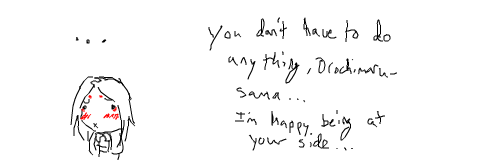 ...
you don't have to do
anything, Orochimaru-
sama...
I'm happy being at
your side...